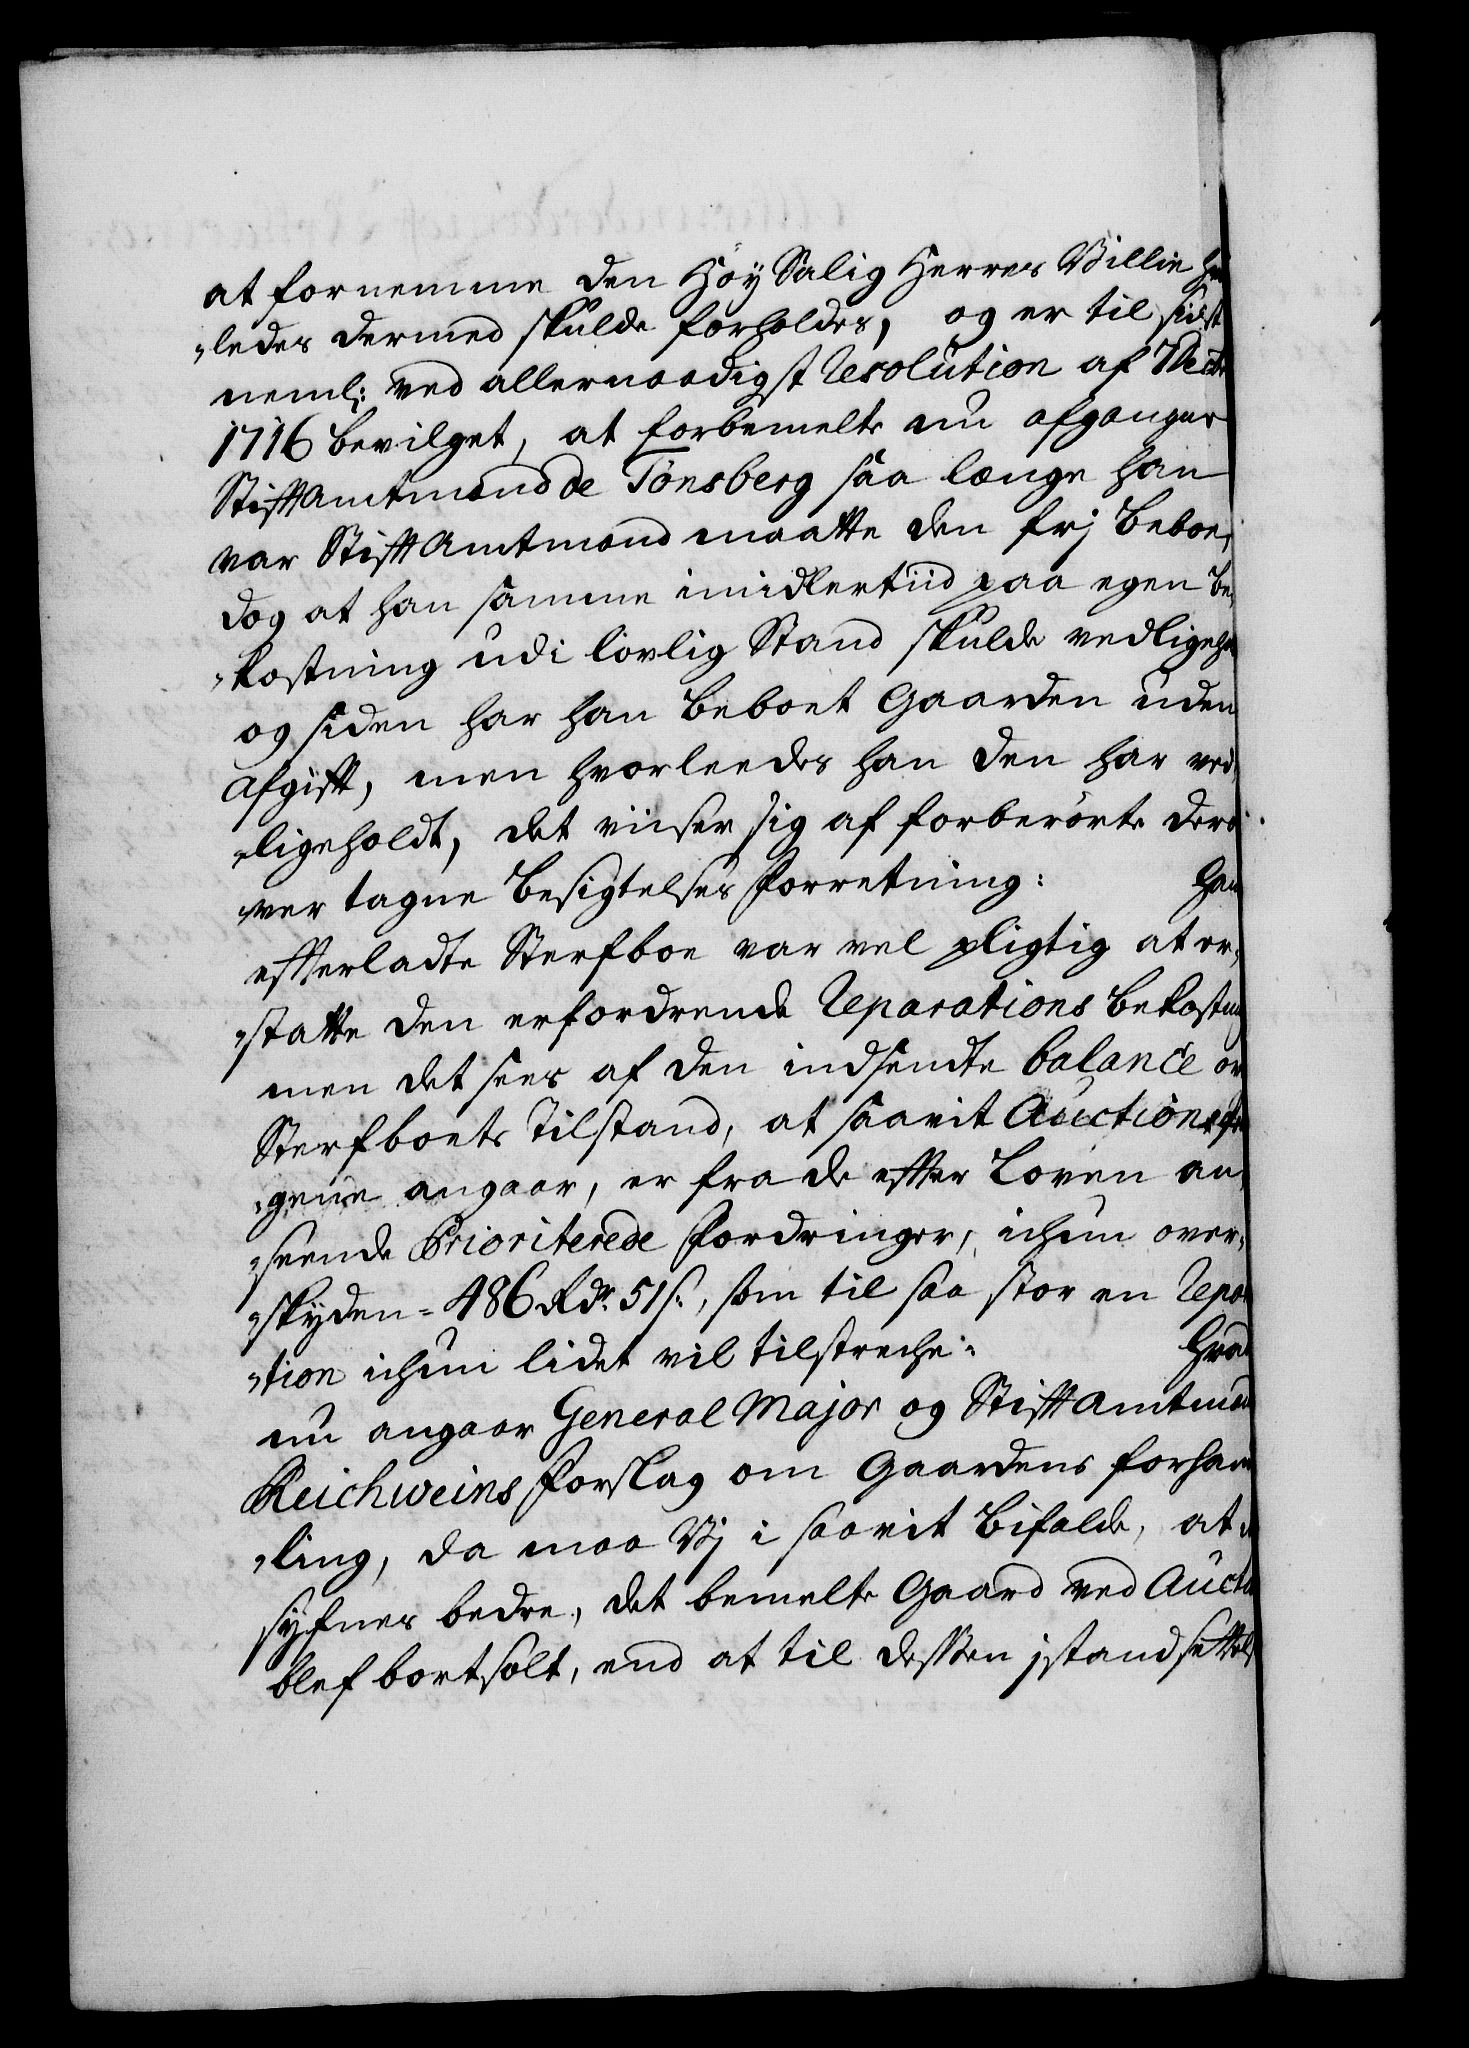 at fornemme den Høy Salig Herres Villie
„ledes dermed skulde forholdes, og er til sidst
neml: ved allernaadigst Resolution af
1716 bevilget, at forbemelte nu afgangne
Stifftamtmand de Tonsberg saa længe han
var Stifft Amtmand maatte den frj beboe,
dog at han samme imidlertiid paa egen be„
„kostning udi lovlig Stand skulde
og siden har han beboet Gaarden uden
Afgifft, men hvorleedes han den har ved„
„ligeholdt, det viiser sig af forberørte dero
„ver tagne Besigtelses Forretning:
effterladte Sterfboe var vel pligtig at er„
„statte den erfordrende Reparations
men det sees af den indsendte balance
Sterfboets Tilstand, at saavit Auctions
„gene angaar, er fra de effter Loven an„
„seende Prioriterede Fordringer, ickun over„
„skyden = 486 Rdr. 51 s:, som til saa stor en
„tion ickun lidet vil tilstreche:
nu angaar General Major og Stifft
Reichweins Forslag om Gaardens
„ling, da maa Vj i saavit bifalde, at
syfnes bedre, det bemelte Gaard ved
blef bortsolt, end at til dessen